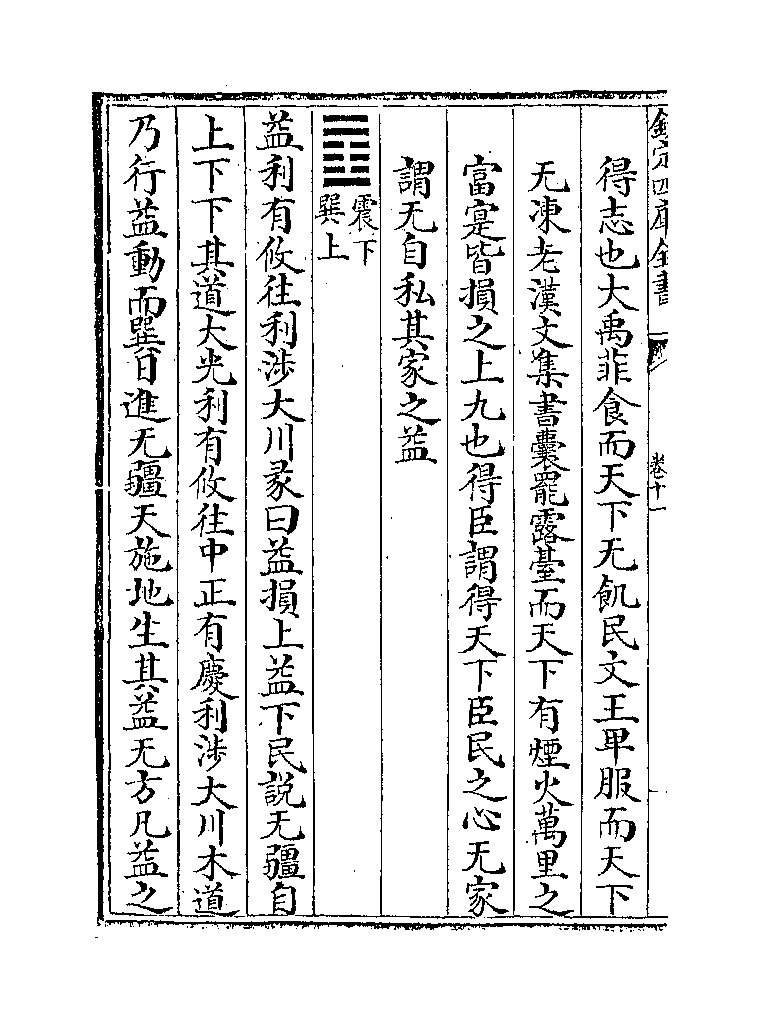 欽定四庫全書
卷十一
得志也大禹菲食而天下无飢民文王卑服而天下
无凍老漢文集書囊罷露臺而天下有煙火萬里之
富寔皆損之上九也得臣謂得天下臣民之心无家
謂无自私其家之益
䷩震下
巽上
益利有攸往利涉大川彖曰益損上益下民說无疆自
上下下其道大光利有攸往中正有慶利涉大川木道
乃行益動而巽日進无疆天施地生其益无方凡益之